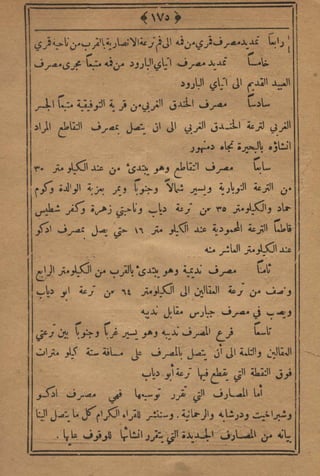 ﴿ ١٧٥ ﴾
رابعًا تمديد مصرف قمري من فمه الى فم ترعة الانصارية بالقرب من ناحية قمري
خامسًا تمديد مصرف اتياي البارود من فمه متبعًا مجرى مصرف
العبيد القديم الى اتياي البارود
سادسًا مصرف الخندق الغربي من قرية التوفيقية متبعًا الجسر
الغربي لترعة الخندق الغربي الى ان يتصل بمصرف التقاطع المراد
انشاؤه بالبحيرة تجاه دمنهور
سابعًا مصرف التقاطع وهو يبتدئ من عند الكيلو متر ٣٠
من الترعة النوبارية ويسير شمالاً وجنوبًا ويمر بعزبة الوالدة وكوم
حماد والكيلو متر ٣٥ من ترعة دياب وناحيتي زهرة وكفر شطيس
قاطعًا الترعة المحمودية عند الكيلو متر ١٦ حتى يصل بمصرف ادكو
عند الكيلو متر العاشر منه
ثامنًا مصرف نديبة وهو يبتدئ بالقرب من الكيلو متر الرابع
ونصف من ترعة المقالين الى الكيلو متر ٦٤ من ترعة ابو دياب
ويصب في مصرف جبارس مقابل نديبه
تاسعًا فرع المصرف نديبه وهو يسير غربًا وجنوبًا بين ترعتي
المقالين والثلمة الى أن يتصل بالمصرف على مسافة ستة كيلو مترات
فوق النقطة التي يقطع فيها ترعة أبو دياب
أما المصارف التي تقرر توسيعها فهي مصرف ادكو
وشبراخيت ودرشابه والرحمانية . وسننشر للقراء الكرام كل ما يتصل الينا
بيانه من المصارف الجديدة التي يتقرر انشائها للوقوف عليها .